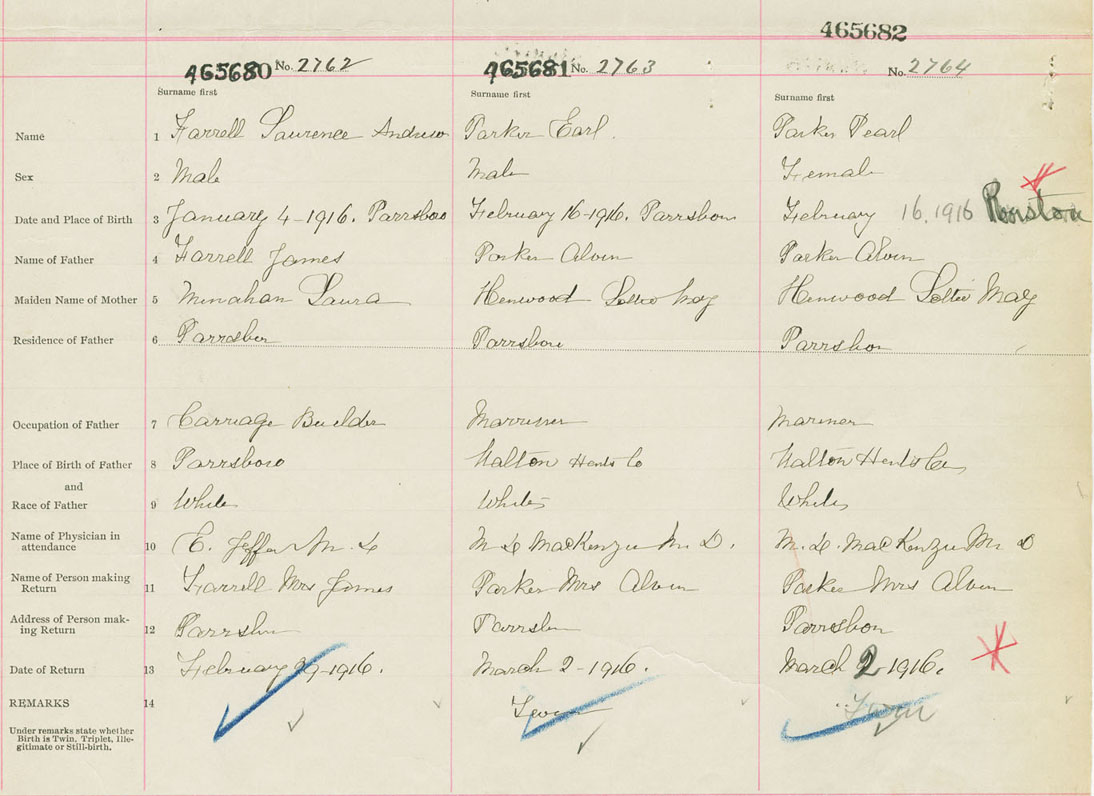 465682
465680 No. 2762 465681 No. 2763 No. 2764
Surname first Surname first Surname first
Name 1 Farrell Laurence Andrew Parker Earl. Parker Pearl
Sex 2 Male Male Female
Date and Place of Birth 3 January 4-1916. Parrsboro February 16-1916. Parrsboro February 16, 1916
Name of Father 4 Farrell James Parker Alvin Parker Alvin
Maiden Name of Mother 5 Minahan Laura Henwood Lottie May Henwood Lottie May
Residence of Father 6 Parrsboro Parrsboro Parrsboro
Occupation of Father 7 Carriage Builder Marriner Mariner
Place of Birth of Father 8 Parrsboro Walton Hants Co Walton Hants Co
and
Race of Father 9 White White White
Name of Physician in
attendance 10 E. Jeffers M. D. M. D. MacKenzie M. D. M. D. MacKenzie M. D
Name of Person making
Return 11 Farrell Mrs James Parker Mrs Alvin Parker Mrs Alvin
Address of Person mak-
ing Return 12 Parrsboro Parrsboro Parrsboro
Date of Return 13 February 29-1916. March 2-1916. March 2-1916.
REMARKS 14 Twin Twin
Under remarks state whether
Birth is Twin, Triplet, Ille-
gitimate or Still-birth.